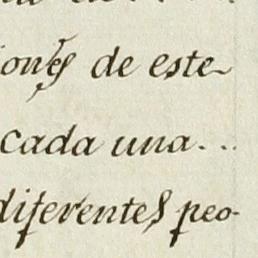 de este
cada una...
diferentes peo-